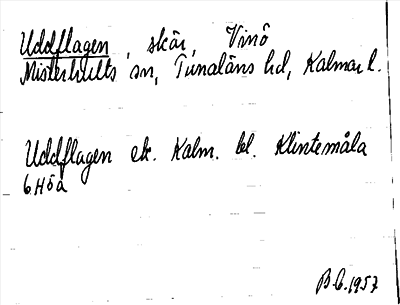 Uddflagen, skär, Vinö
Misterhults sn, Tunaläns hd, Kalmar l.
Uddflagen ek. Kalm. bl. Klintemåla
6Höa
B.C. 1957